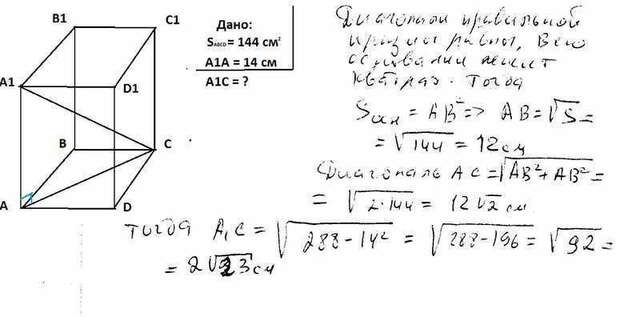 B1
C1
A1
D1
B
C
A
D
Дано:
Sавсд = 144 см²
A1A = 14 см
A1C = ?
Диагонали правильной
призмы равны, В его
основании лежит
квадрат. Тогда
Sосн = AB² => AB = √S =
= √144 = 12 см
Диагональ AC = √AB² + AB² =
= √2·144 = 12√2 см
Тогда A₁C = √288 - 14² = √288 - 196 = √92 =
= 2√23 см